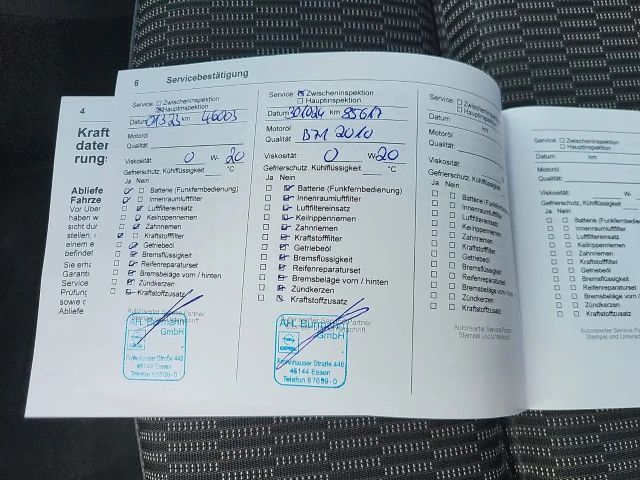 4
Kraft
daten
rungs
Abliefe
Fahrze
Vor Übe
haben w
sicht dur
stellen,
einem e
befindet
Sie erha
Garanti
Service
Prüfung
sowie d
Abliefe
6 Servicebestätigung
Service: Zwischeninspektion
Hauptinspektion
Datum km 46003
Motoröl
Qualität:
Viskosität: 0 W- 20
Gefrierschutz, Kühlflüssigkeit
°C
Ja Nein
Batterie (Funkfernbedienung)
Innenraumluftfilter
Luftfiltereinsatz
Keilrippenriemen
Zahnriemen
Kraftstofffilter
Getriebeöl
Bremsflüssigkeit
Reifenreparaturset
Bremsbeläge vorn / hinten
Zündkerzen
Kraftstoffzusatz
Autorisierter Service Partner
AH. Burmann
GmbH
OPEL
Frohnhauser Straße 448
45144 Essen
Telefon 87699-0
Service: Zwischeninspektion
Hauptinspektion
Datum 301024 km 85617
Motoröl
Qualität 2010
Viskosität: 0 W- 20
Gefrierschutz, Kühlflüssigkeit
°C
Ja Nein
Batterie (Funkfernbedienung)
Innenraumluftfilter
Luftfiltereinsatz
Keilrippenriemen
Zahnriemen
Kraftstofffilter
Getriebeöl
Bremsflüssigkeit
Reifenreparaturset
Bremsbeläge vorn / hinten
Zündkerzen
Kraftstoffzusatz
Autorisierter Service Partner
AH. Burmann
GmbH
OPEL
Frohnhauser Straße 448
45144 Essen
Telefon 87699-0
Service: Zwischeninspektion
Hauptinspektion
Datum km
Motoröl
Qualität:
Viskosität: W-
Gefrierschutz, Kühlflüssigkeit
Ja Nein
Batterie (Funkfernbedienung)
Innenraumluftfilter
Luftfiltereinsatz
Keilrippenriemen
Zahnriemen
Kraftstofffilter
Getriebeöl
Bremsflüssigkeit
Reifenreparaturset
Bremsbeläge vorn / hinten
Zündkerzen
Kraftstoffzusatz
Autorisierter Service Partner
Stempel und Unterschrift
Service: Zwischeninspektion
Hauptinspektion
Datum km
Motoröl
Qualität:
Viskosität: W-
Gefrierschutz, Kühlflüssigkeit
Ja Nein
Batterie (Funkfernbedienu
Innenraumluftfilter
Luftfiltereinsatz
Keilrippenriemen
Zahnriemen
Kraftstofffilter
Getriebeöl
Bremsflüssigkeit
Reifenreparaturset
Bremsbeläge vorn / hinten
Zündkerzen
Kraftstoffzusatz
Autorisierter Service Partn
Stempel und Untersch